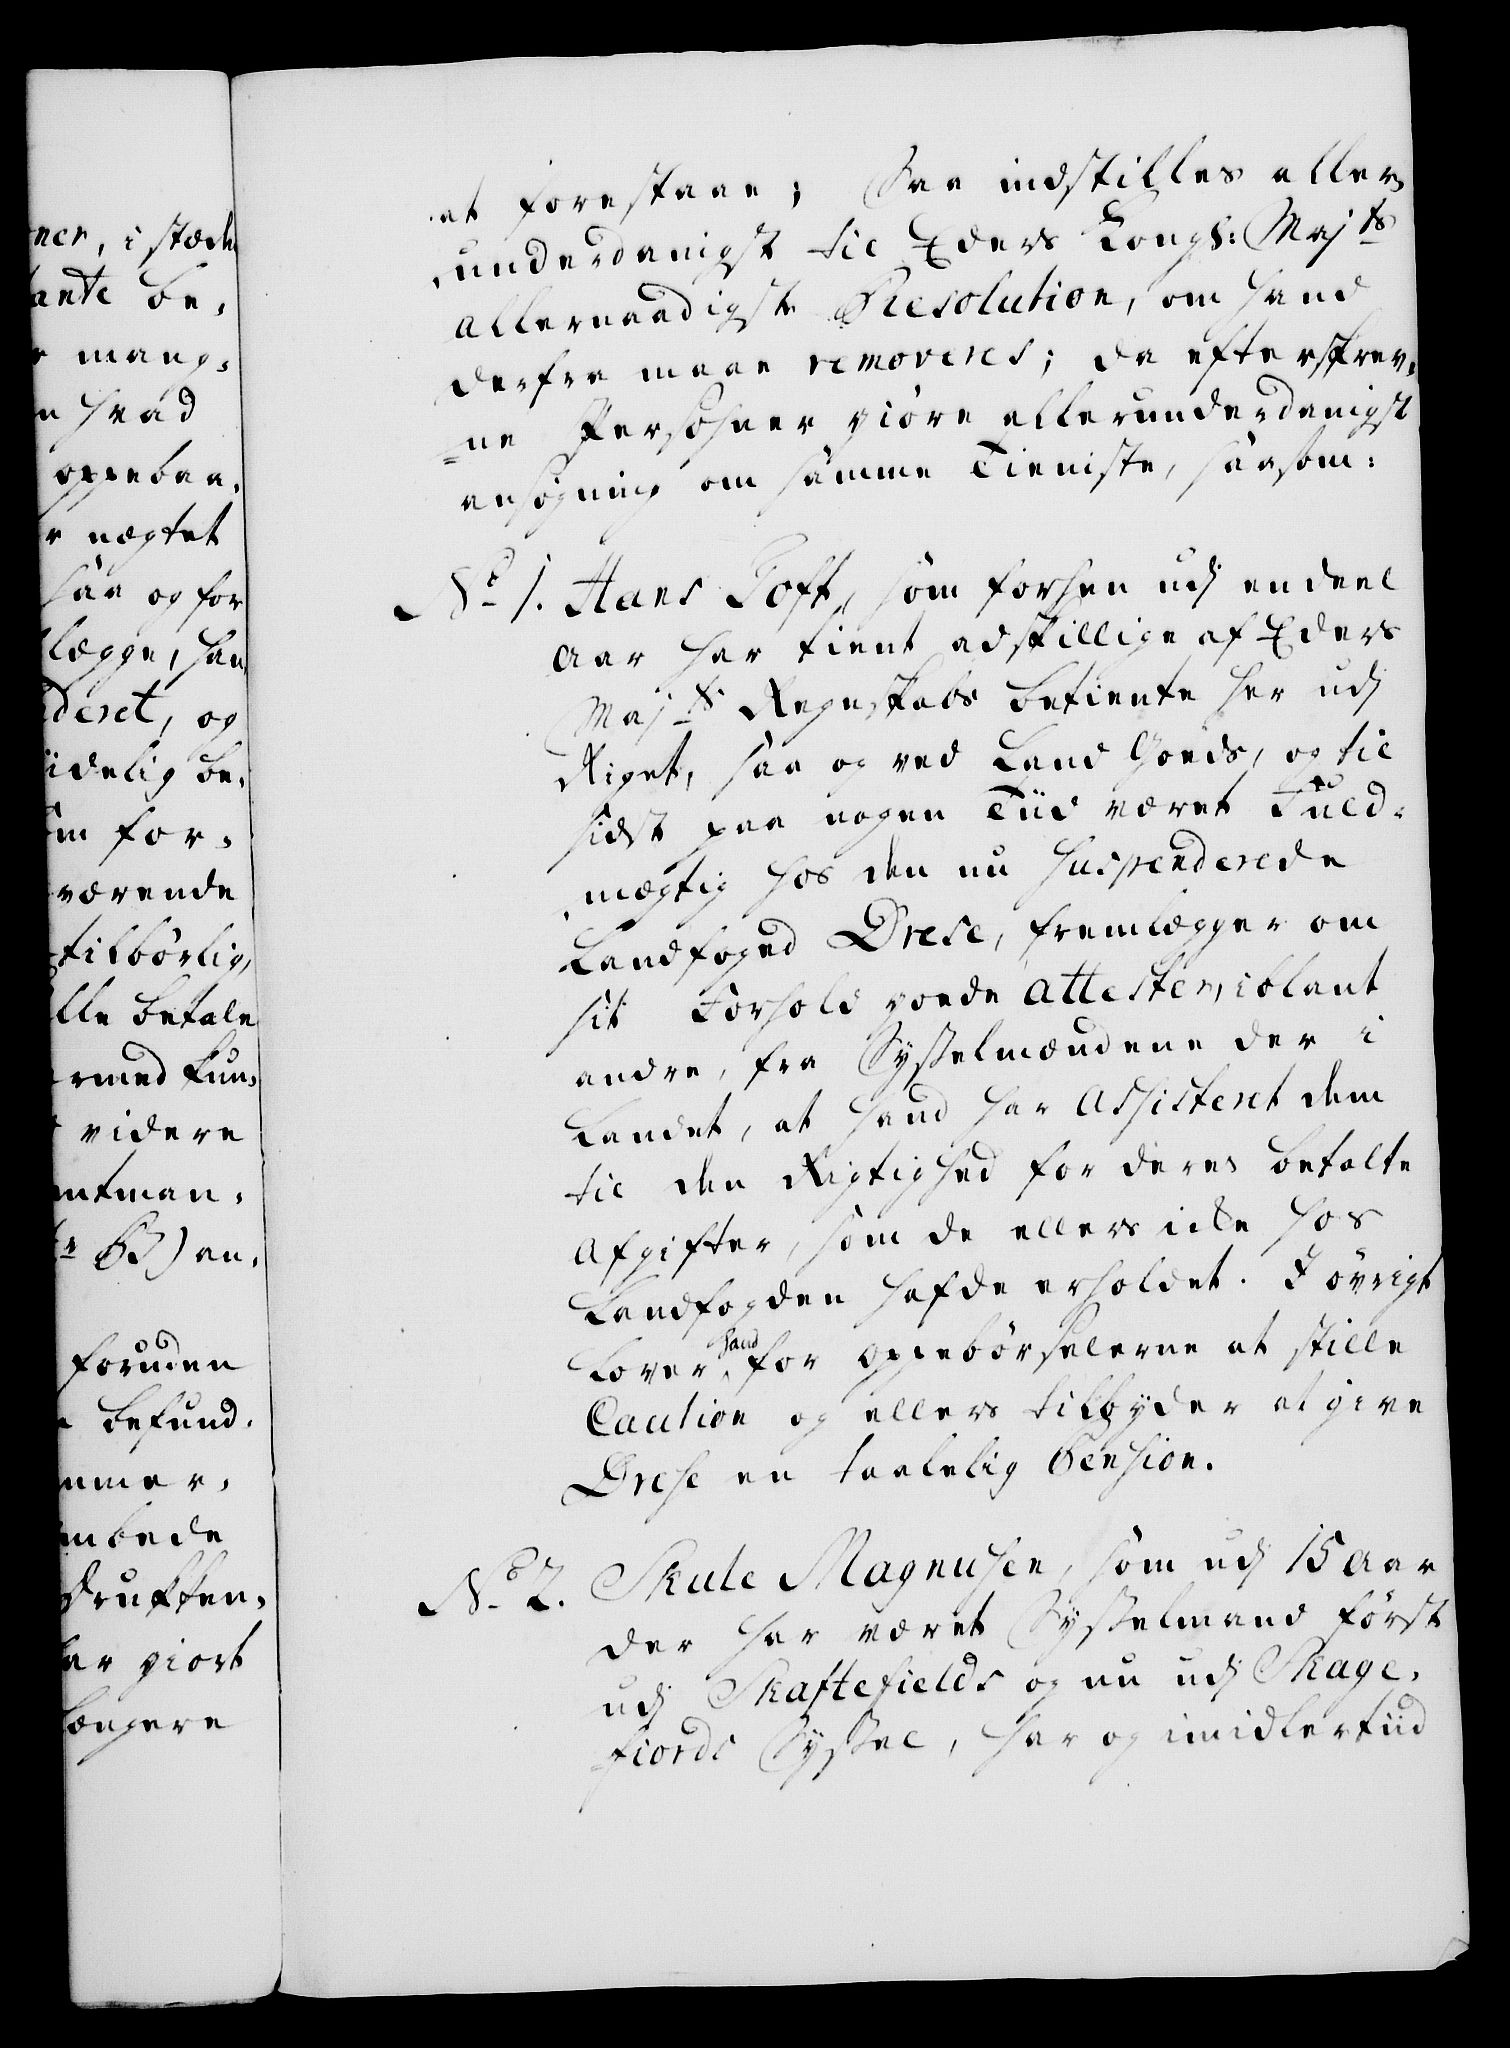 ner, i stæde
tante be,
mang,
hvad
oppebaa,
r nægtet
saa og for
lægge, han
deret, og
idelig be,
om for,
værende
tilbørlig,
lle betale
rmed kun,
videre
mtman,
63) an,
foruden
befund,
mmer,
mbede
druften,
har giort
længere
at forestaae; Saa indstilles aller,
underdanigst til Eders Kongl: Majts
allernaadigste Resolution, om hand
derfra maae removeres; da efterskrev,
ne Persohner giøre allerunderdanigst
ansøgning om samme Tieniste, saasom:
No 1. Hans Toft, som forhen udj endeel
Aar har tient adskillige af Eders
Majts Regnskabs betiente her udj
Riget, saa og ved Land Goeds, og til
sidst paa nogen Tiid været Fuld,
mægtig hos den nu suspenderede
Landfoged Drese, fremlægger om
sit Forhold goede Attester, iblant
andre, fra Sysselmændene der i
Landet, at hand har assisteret dem
til den Rigtighed for deres betalte
Afgifter, som de ellers icke hos
Landfogden hafde erholdet. I øvrigt
Lover hand for oppebørselerne at stille
Caution og ellers tilbyder at give
Drese en taalelig Pension.
No 2. Skule Magnusen, som udj 15 Aar
der har været Sysselmand først
udj Skaftefields og nu udj Skage,
fiords Syssel, har og imidlertiid